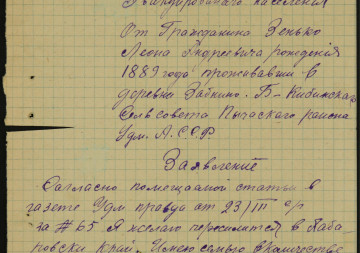 населения
От Гражданина Зенько
Леона Андреевича рождения
1889 года проживавши в
деревни Забкино. Б-Кибинская
Сельсовета Пычаского района
Удм. А.ССР
Заявление
Салласно помещаамой статьи в
газете Удм правда от 23/III с/г
за # 65 Я желаю переселится в Хаба
ровски Край, Имею семью в количестве